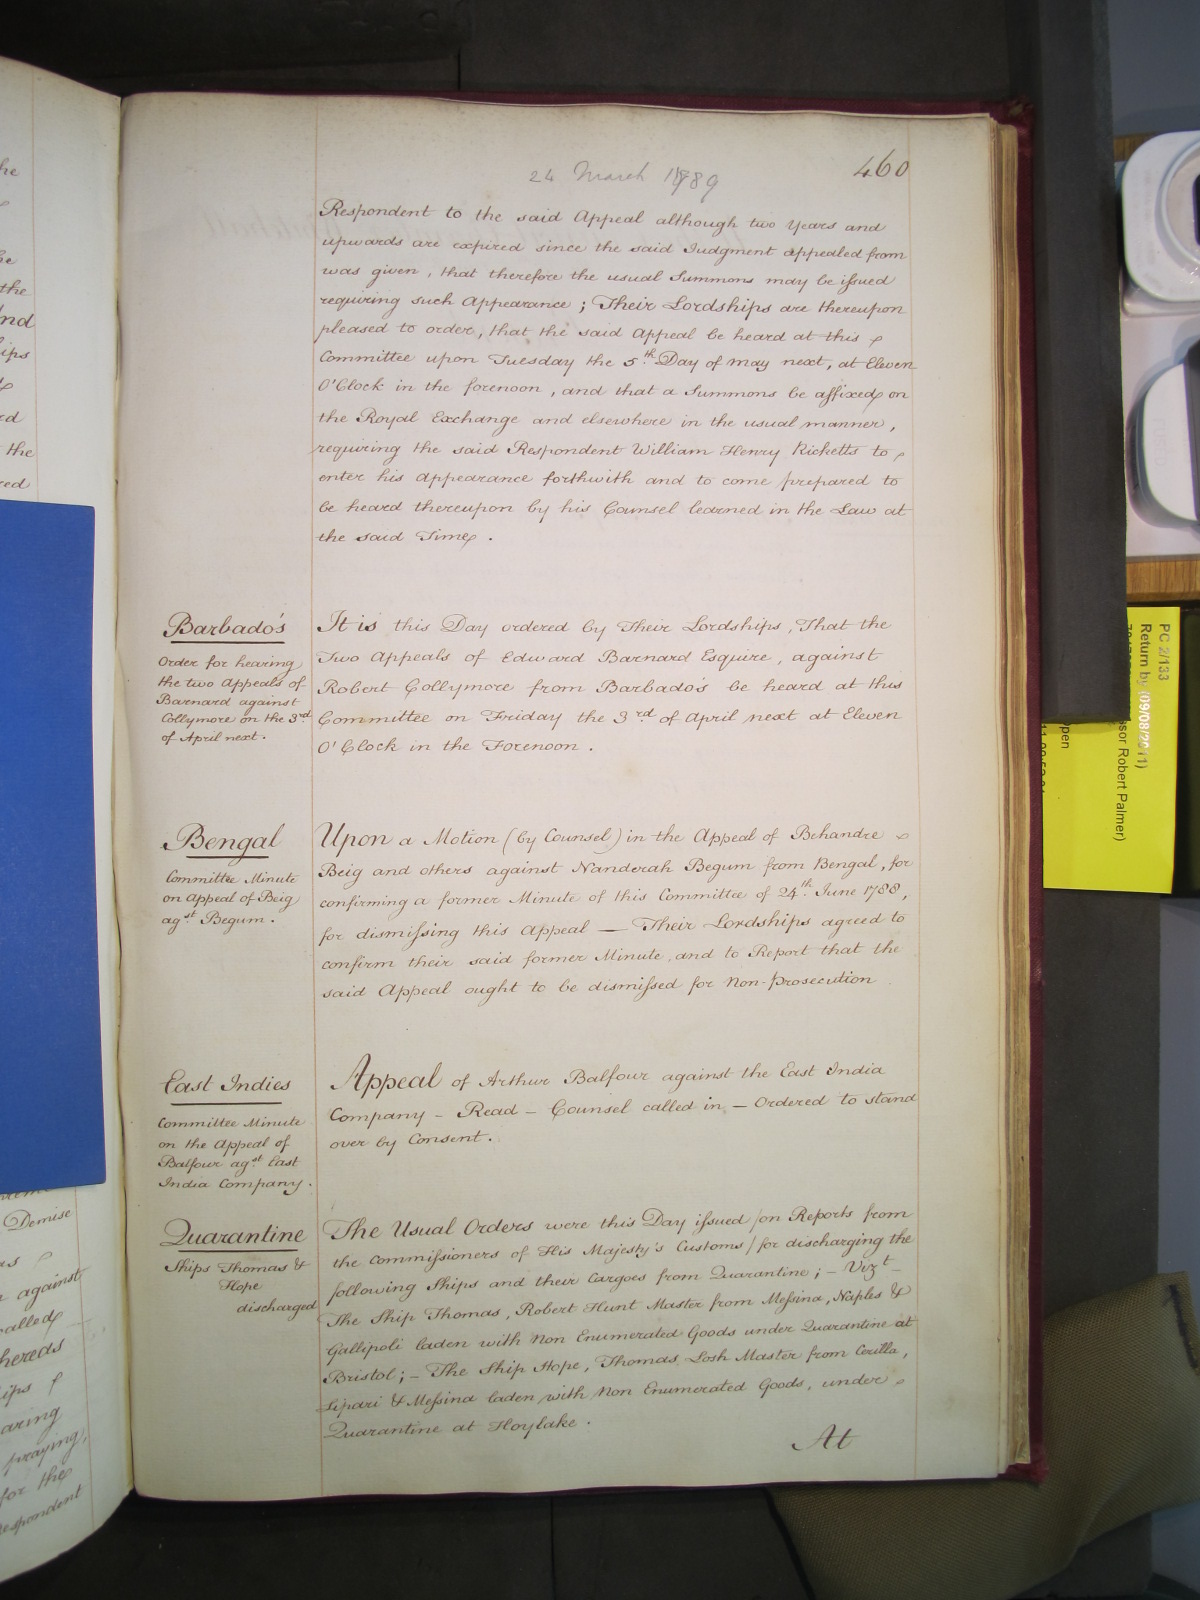 460
24 March 1789
Respondent to the said Appeal although two Years and
upwards are expired since the said Judgment appealed from
was given, that therefore the usual Summons may be issued
requiring such Appearance; Their Lordships are thereupon
pleased to order, that the said Appeal be heard at this
Committee upon Tuesday the 5th Day of May next, at Eleven
O'Clock in the forenoon, and that a Summons be affixed on
the Royal Exchange and elsewhere in the usual manner,
requiring the said Respondent William Henry Ricketts to
enter his Appearance forthwith and to come prepared to
be heard thereupon by his Counsel learned in the Law at
the said Time.
Barbado's
Order for hearing
the two Appeals of
Barnard against
Collymore on the 3rd
of April next.
It is this Day ordered by Their Lordships, That the
Two Appeals of Edward Barnard Esquire, against
Robert Collymore from Barbado's be heard at this
Committee on Friday the 3rd of April next at Eleven
O'Clock in the Forenoon.
Bengal
Committee Minute
on Appeal of Beig
agst Begum.
Upon a Motion (by Counsel) in the Appeal of Behandre
Beig and others against Nanderah Begum from Bengal, for
confirming a former Minute of this Committee of 24th June 1788,
for dismissing this Appeal — Their Lordships agreed to
confirm their said former Minute, and to Report that the
said Appeal ought to be dismissed for Non-Prosecution
East Indies
Committee Minute
on the Appeal of
Balfour agst East
India Company.
Appeal of Arthur Balfour against the East India
Company – Read – Counsel called in – Ordered to stand
over by Consent.
Quarantine
Ships Thomas &
Hope
discharged
The Usual Orders were this Day issued /on Reports from
the Commissioners of His Majesty's Customs/ for discharging the
following Ships and their Cargoes from Quarantine; – Vizt –
The Ship Thomas, Robert Hunt Master from Messina, Naples &
Gallipoli laden with Non Enumerated Goods under Quarantine at
Bristol; – The Ship Hope, Thomas Losh Master from Cerilla,
Lipari & Messina laden with Non Enumerated Goods, under
Quarantine at Hoylake.
At
the
nd
ips
the
Demise
against
called
praying,
for the
Respondent
PC 2/133
Return by (09/08/2011)
sor Robert Palmer)
pen